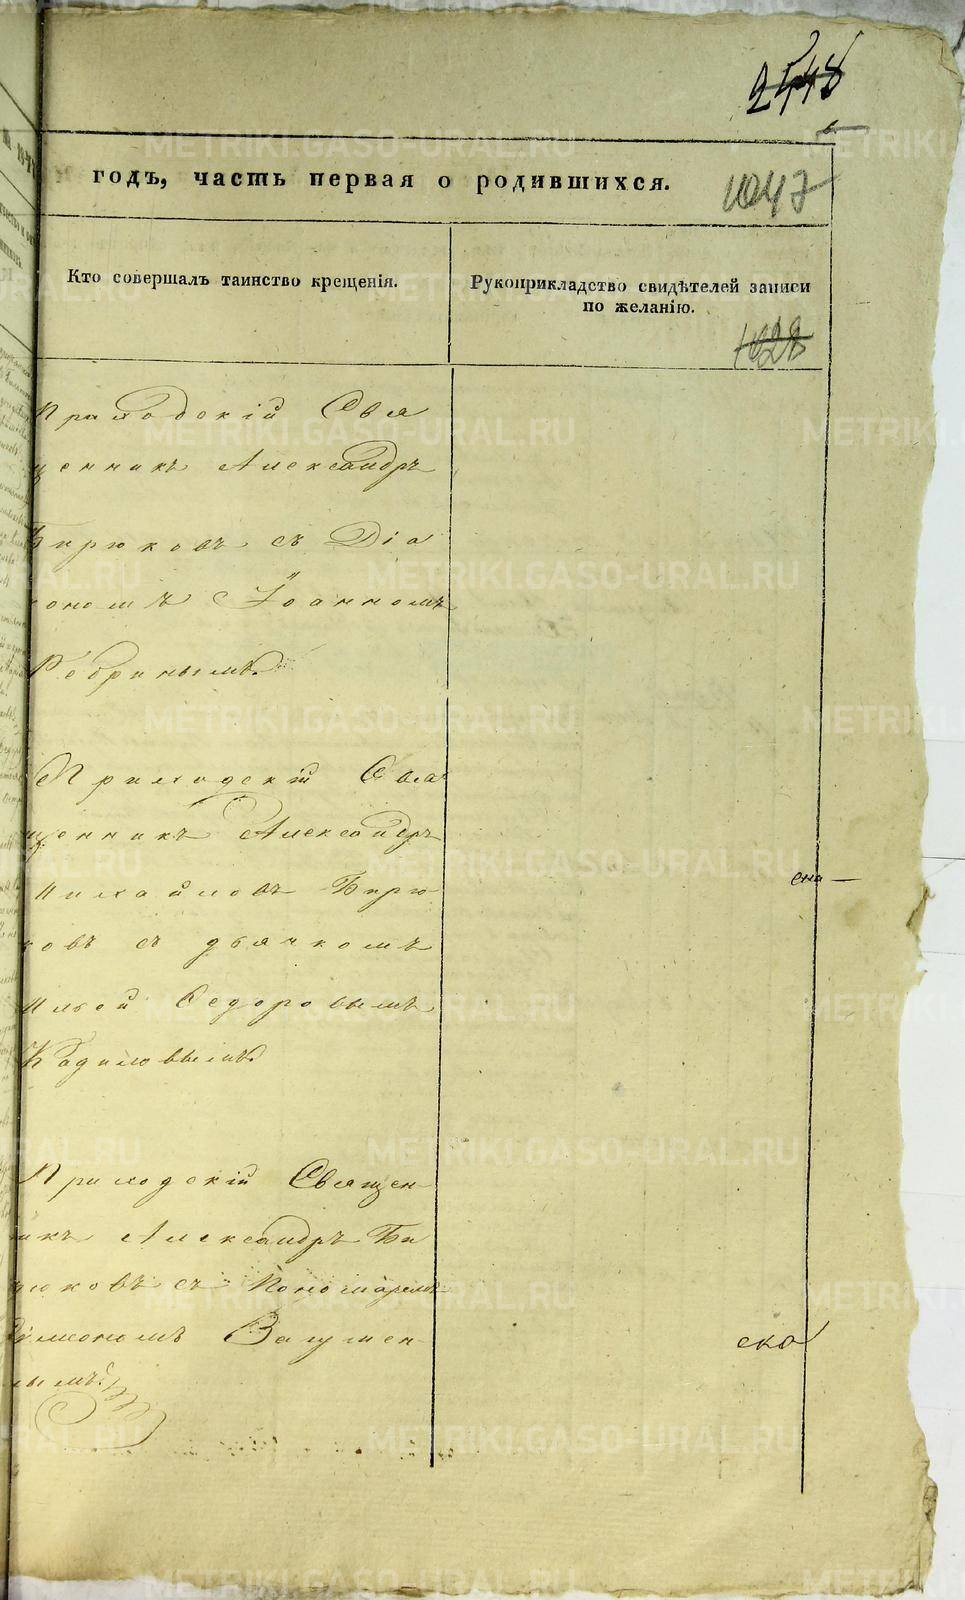 2548
годъ, часть первая о родившихся.
1047
Кто совершалъ таинство крещенія.
Рукоприкладство свидѣтелей записи
по желанію.
1028
Приходскій Свя
щенникъ Александръ
Бирюковъ съ Діа
кономъ Іоанномъ
Ребринымъ.
Приходскій Свя
щенникъ Александръ
Михайловъ Бирю
ковъ съ дьячкомъ
Ильей Ѳедоровымъ
Кадиловымъ.
Приходскій Священ
никъ Александръ Би
рюковъ съ Пономаремъ
Симеономъ
нымъ.
ска
METRIKI.GASO-URAL.RU